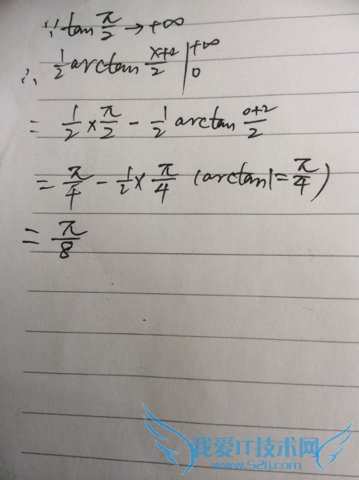 ∵ tan π/2 → +∞
∴ 1/2 arctan (x+2)/2 |₀^{+∞}
= 1/2 × π/2 - 1/2 arctan (0+2)/2
= π/4 - 1/2 × π/4 (arctan1 = π/4)
= π/8
我爱IT技术网
www.52ij.com